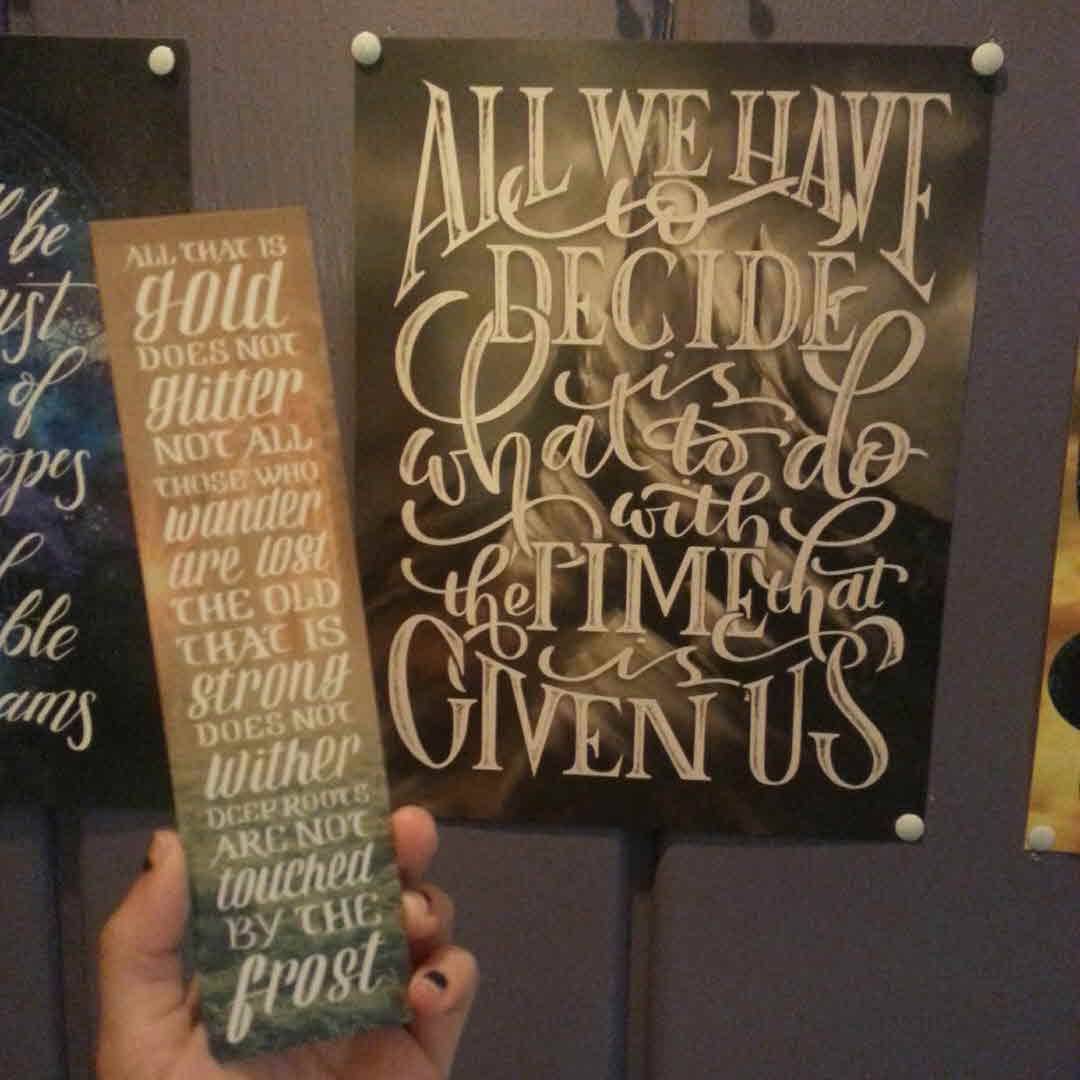 ALL THAT IS
gold
DOES NOT
glitter
NOT ALL
THOSE WHO
wander
are lost
THE OLD
THAT IS
strong
DOES NOT
wither
DEEP ROOTS
ARE NOT
touched
BY THE
frost
ALL WE HAVE
to
DECIDE
is
what to do
with
the TIME that
is
GIVEN US
be
of